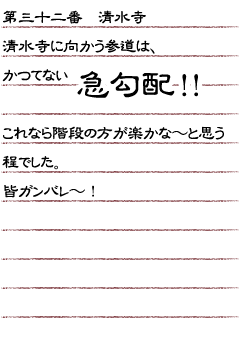 第三十二番　清水寺
清水寺に向かう参道は、
かつてない 急勾配!!
これなら階段の方が楽かな～と思う
程でした。
皆ガンバレ～！